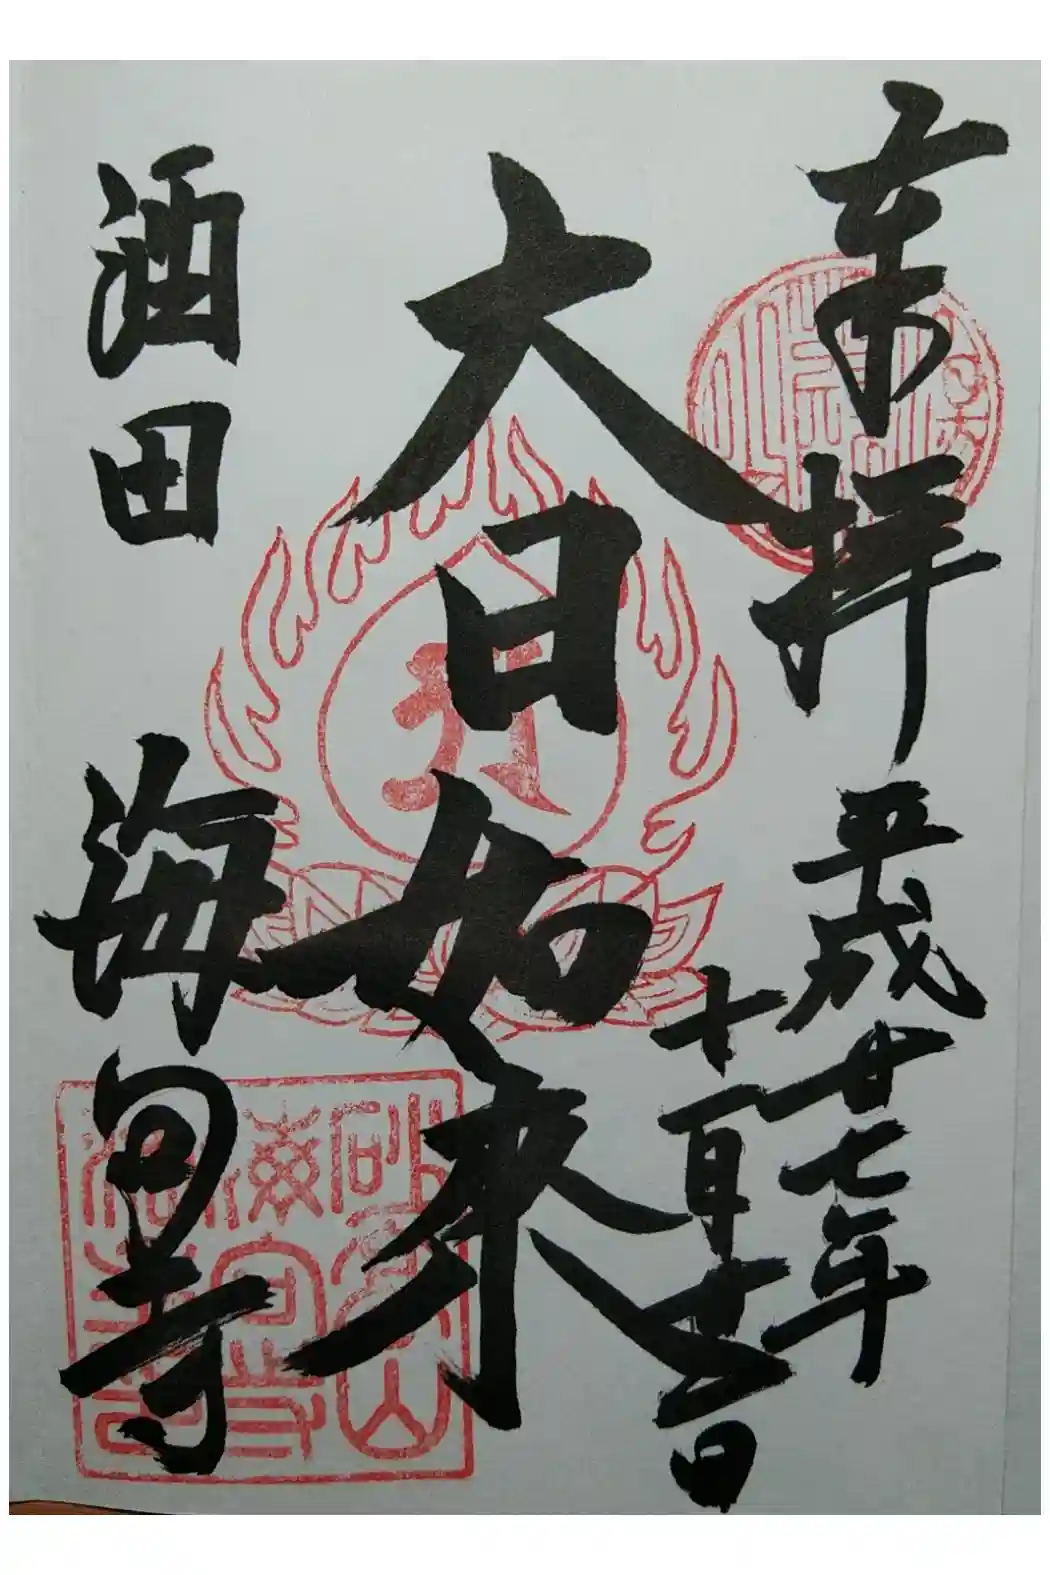 奉拝 平成廿七年
十一月廿 日
大日如来
酒田 海向寺